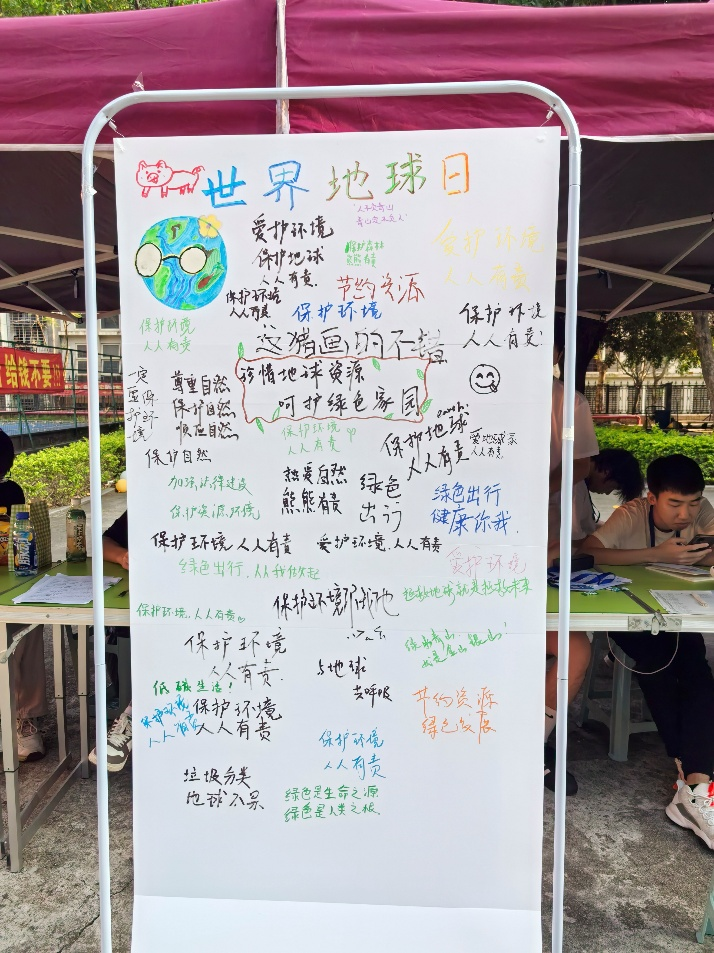 世界地球日
爱护环境
保护地球
人人有责
保护森林
熊熊有责
爱护环境
人人有责
节约资源
保护环境
人人有责
保护环境
保护环境
人人有责
保护环境
人人有责!
这猪画的不错
珍惜地球资源
呵护绿色家园
给钱不要
一定
要保
护好环
境
尊重自然
保护自然
顺应自然
保护自然
保护环境
人人有责
earth!
保护地球
人人有责
爱地球家
人人有责
加强法律建设
保护资源、环境
热爱自然
熊熊有责
绿色
出行
绿色出行
健康你我.
保护环境、人人有责
爱护环境、人人有责
绿色出行,从我做起
爱护环境
拯救地球就是拯救未来
保护环境、人人有责
保护环境
人人有责.
绿水青山
就是金山银山!
低碳生活!
与地球
共呼吸
节约资源
绿色发展
保护环境
人人有责
保护环境
人人有责
保护环境
人人有责
垃圾分类
绿色是生命之源
绿色是人类之根